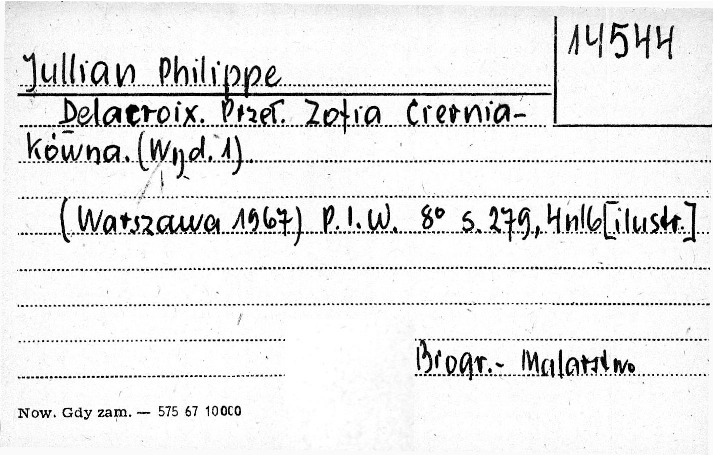 14544
Jullian Philippe
Delacroix. Przeł. Zofia Ciernia-
kówna. (Wyd. 1).
(Warszawa 1967) P.I.W. 8° s. 279, 4 nlb [ilustr.]
Biogr. - Malarstwo
Now. Gdy zam. — 575 67 10000